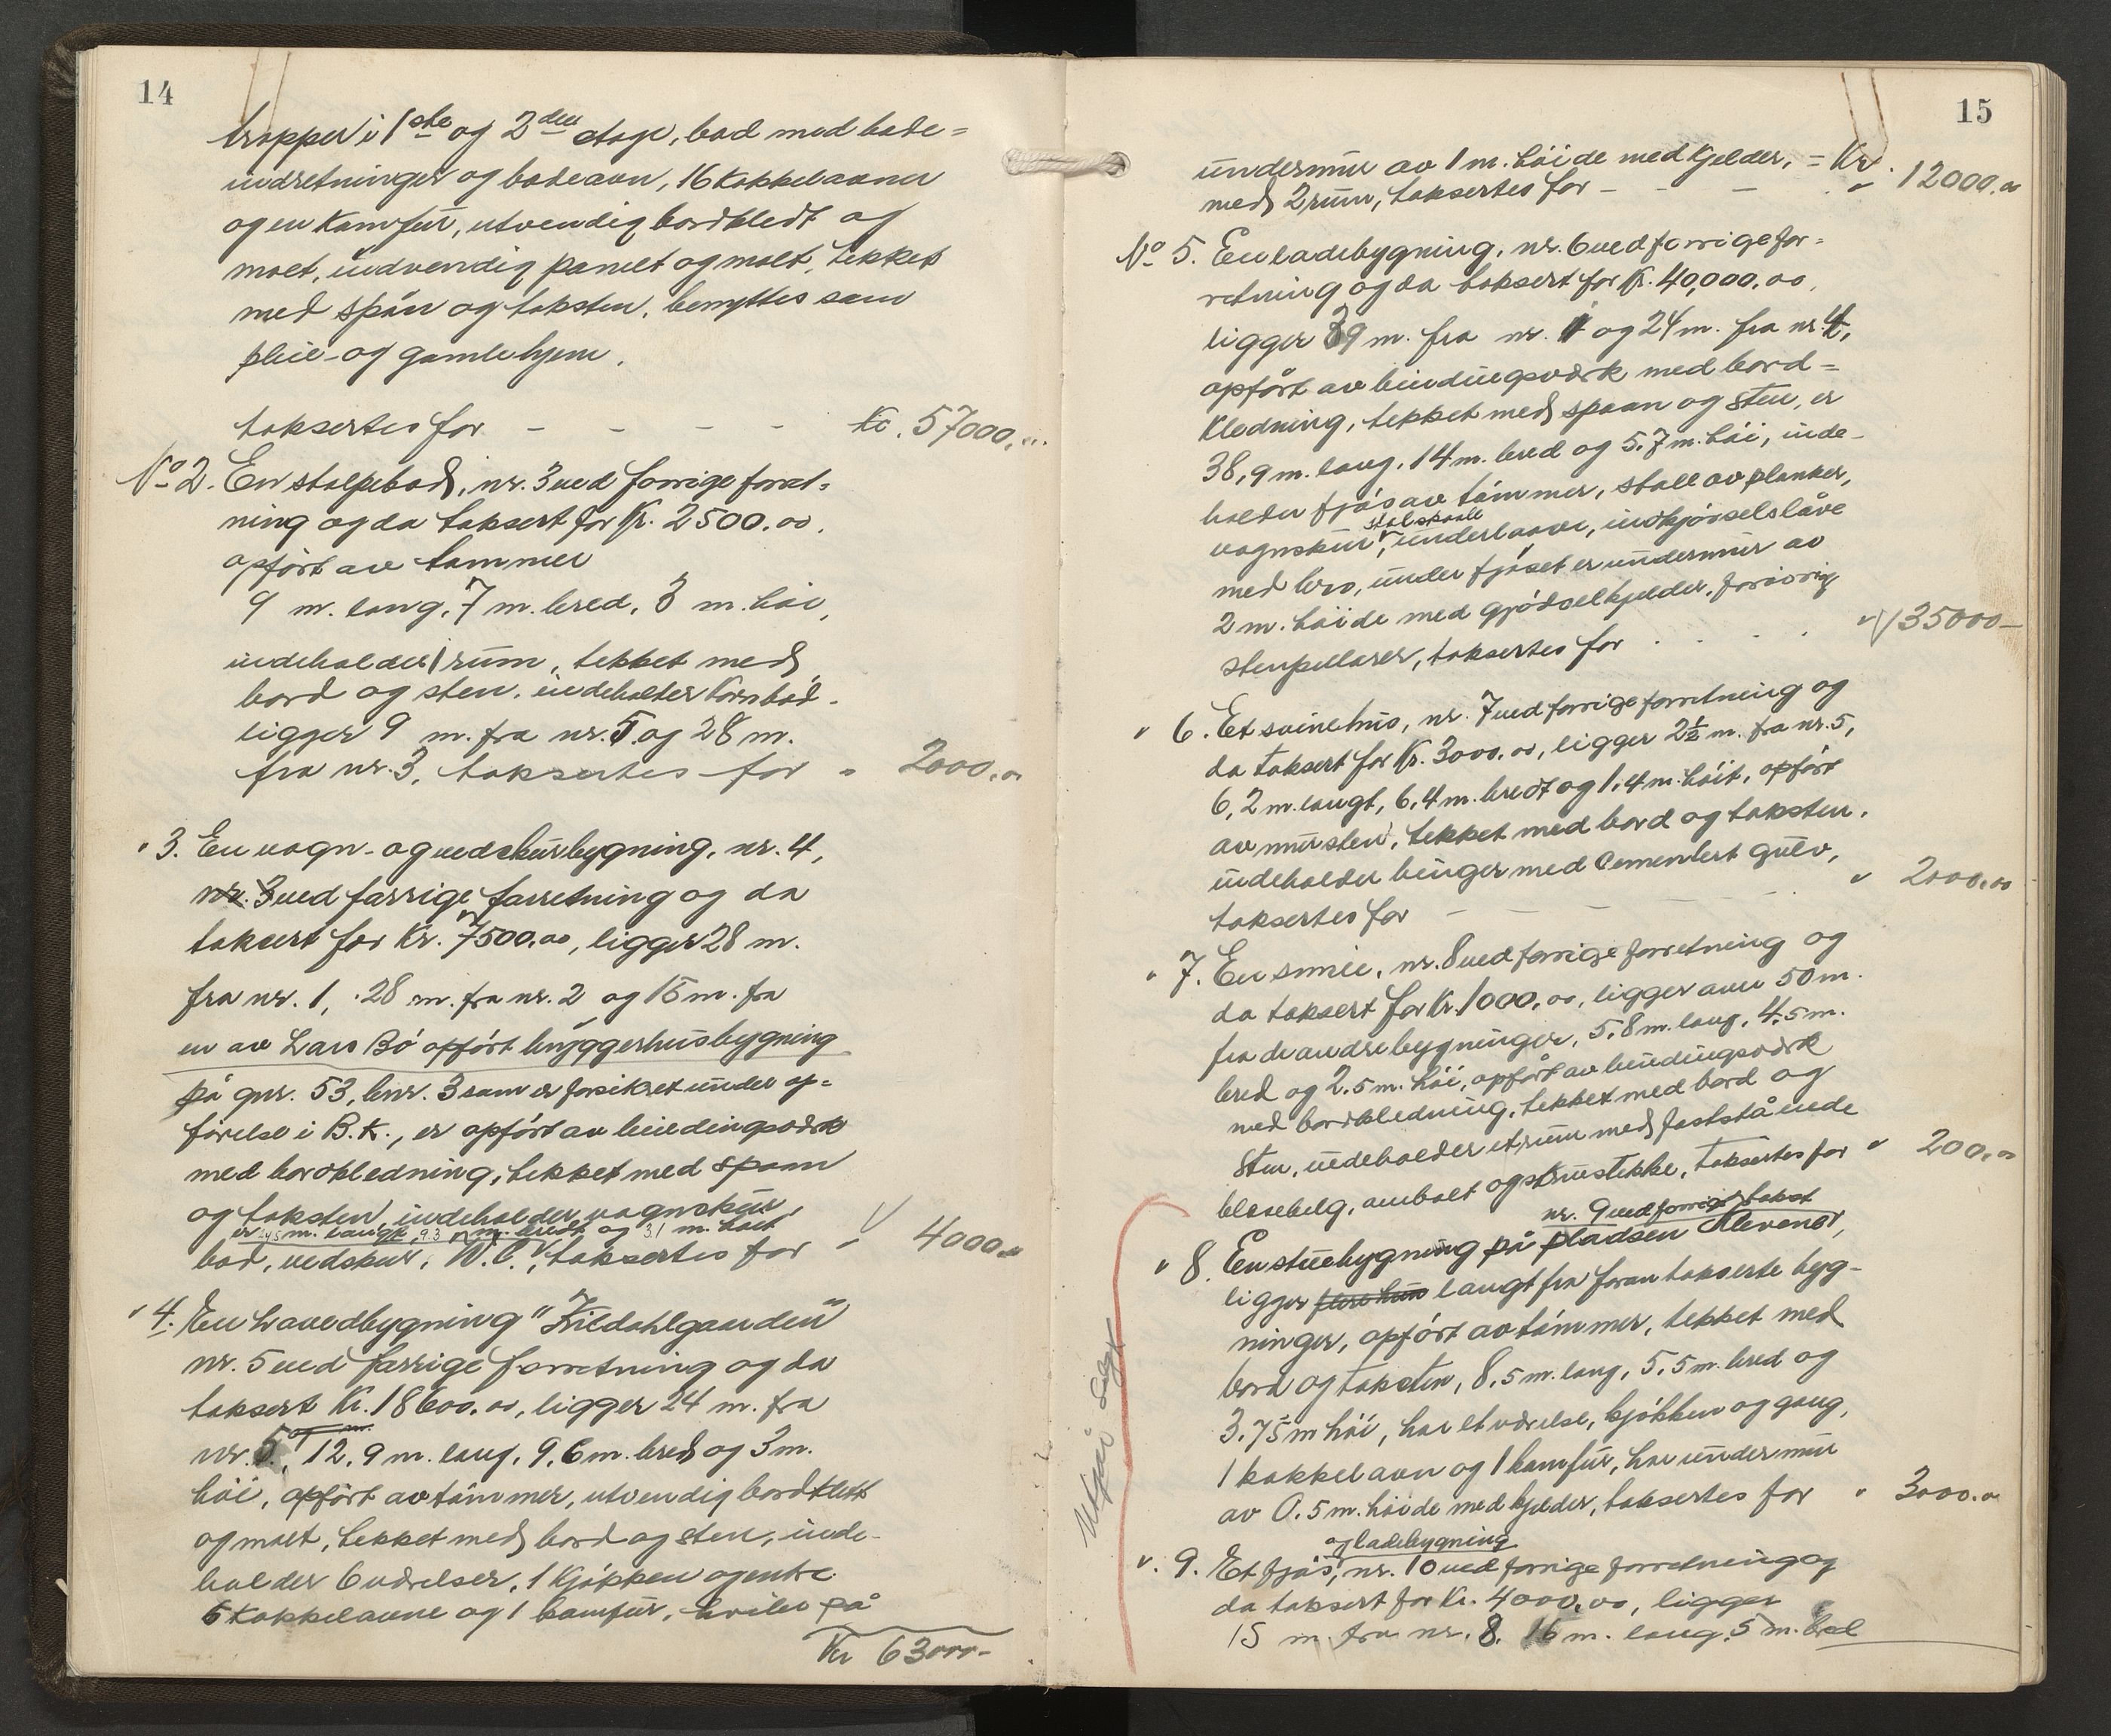 14
trapper i 1ste og 2den etage, bad med bade=
indretninger og badeavn, 16 kakkelavner
og en Kamfur, utvendig bordkledt og
malt, indvendig panelt og malt, tekket
med spån og taksten, benyttes som
pleie- og gamlehjem.
taksertes for - - - - Kr. 57000,00
No 2. En stolpebod, nr. 3 ved forrige forret=
ning og da taksert for Kr. 2500.00,
opført av tømmer
9 m. lang, 7 m. bred, 3 m. høi,
indeholder 1 rum, tekket med
bord og sten, indeholder Kornbod.
ligger 9 m. fra nr. 5. og 28 m.
fra nr. 3, taksertes for " 2000.00
" 3. En vogn- og vedskurbygning, nr. 4,
nr. 3 ved forrige forretning og da
taksert for Kr. 7500.00, ligger 28 m.
fra nr. 1, 28 m. fra nr. 2 og 15 m. fra
en av Lars Bø opført bryggerhusbygning
på gnr. 53, bnr. 3 som er forsikret under op=
førelse i B.K., er opført av bindingsværk
med bordkledning, tekket med spaan
og taksten, indeholder vognskur,
er 45 m. langt, 9.3 m. bredt og 3.1 m. høit
bod, vedskur, W.C., taksertes for " 4000.00
" 4. En havedbygning "Kildahlgaarden"
nr. 5 ved forrige forretning og da
taksert Kr. 18600.00, ligger 24 m. fra
nr. 5, 12.9 m. lang, 9.6 m. bred og 3 m.
høi, opført av tømmer, utvendig bordklett
og malt, tekket med bord og sten, inde-
holder 6 værelser, 1 Kjøkken og entre
5 Kakkelavne og 1 kamfur, hviler på
Kr 63000-
15
undermur av 1 m. høide med Kjelder, = Kr.
med 2 rum, taksertes for - - - " 12000.00
No 5. En ladebygning, nr. 6 ved forrige for=
retning og da taksert for Kr. 40,000.00,
ligger 39 m. fra nr. 1 og 24 m. fra nr. 4,
opført av bindingsværk med bord=
Kledning, tekket med spaan og sten, er
38,9 m. lang, 14 m. bred og 5.7 m. høi, inde-
holder fjøs av tømmer, stall av planker,
stalskaale
vognskur, underlaave, indkjørselslåve
med bro, under fjøset er undermur av
2 m. høide med gjødselkjelder, forøvrig
stenpillarer, taksertes for . . . . " 35000-
" 6. Et svinehus, nr. 7 ved forrige forretning og
da taksert for Kr. 3000.00, ligger 2½ m. fra nr. 5,
6,2 m. langt, 6.4 m. bredt og 1.4 m. høit, opført
av mursten, tekket med bord og taksten,
indeholder binger med Cementert gulv,
taksertes for - - - - " 2000.00
" 7. En smie, nr. 8 ved forrige forretning og
da taksert for Kr. 1000.00, ligger over 50 m.
fra de andre bygninger, 5.8 m. lang, 4.5 m.
bred og 2.5 m. høi, opført av bindingsværk
med bordkledning, tekket med bord og
sten, indeholder et rum med faststående
blæsebelg, ambolt og skruestikke, taksertes for " 200.00
nr. 9 ved forrige takst
" 8. En stuebygning på pladsen Klevene,
ligger langt fra foran takserte byg-
ninger, opført av tømmer, tekket med
bord og taksten, 8.5 m. lang, 5.5 m. bred og
3.75 m høi, har et værelse, kjøkken og gang,
1 kakkelavn og 1 kamfur, har undermur
av 0.5 m. høide med kjelder, taksertes for " 3000.00
og ladebygning
" 9. Et fjøs, nr. 10 ved forrige forretning og
da taksert for Kr. 4000.00, ligger
15 m. fra nr. 8, 16 m. lang, 5 m. bred
Utgår solgt